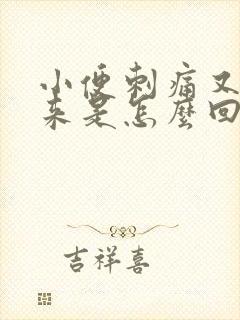 小便刺痛又
来是怎麼回
吉祥喜